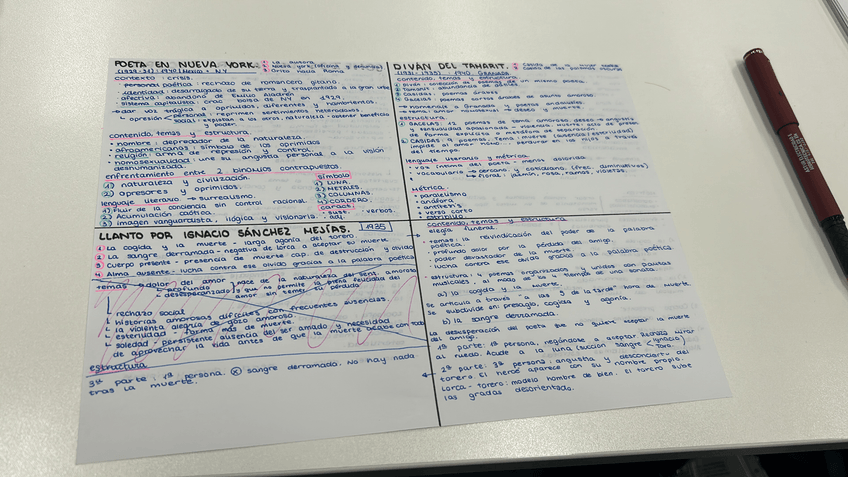 POETA EN NUEVA YORK.
1 La aurora
2 Nueva york (oficina y denuncia)
3 Grito hacia Roma
(1929-31) 1940 México - NY
contexto: crisis.
personal poética: rechazo de romancero gitano.
identidad: desarraigado de su tierra y trasplantado a la gran urbe
afectiva: abandono de Emilio Aladrén
sistema capitalista: crac bolsa de NY en 1929.
dar voz trágica a oprimidos, diferentes y hambrientos.
opresión personal: reprimen sentimientos heterodoxos.
social: explotan a los otros, naturaleza - obtener beneficio
y poder.
contenido, temas y estructura.
• hombre: depredador de la naturaleza.
• afroamericanos: símbolo de los oprimidos
• religión: arma de represión y control.
• homosexualidad: une su angustia personal a la visión
deshumanizada.
enfrentamiento entre 2 binomios contrapuestos.
1) naturaleza y civilización.
2) opresores y oprimidos.
lenguaje literario → surrealismo.
1) Fluir de la conciencia sin control racional
2) Acumulación caótica.
3) imagen vanguardista: ilógica y visionaria.
símbolo
1) LUNA.
2) METALES.
3) COLUMNAS.
4) CORDERO.
caract.
• sust. • verbos.
• adj.
DIVÁN DEL TAMARIT.
(1931-1935) 1940 GRANADA
contenido, temas y estructura
1 Diván: colección de poemas de un mismo poeta.
2 Tamarit: abundancia de dátiles
3 Casidas: poemas árabes
4 Gacela: poemas cortos árabes de asunto amoroso
→ homenaje a Granada y poetas andalusíes.
→ tema: amor y muerte → deseo y muerte.
estructura.
1) GACELAS: 12 poemas de tema amoroso, deseo → angustia
y sensualidad apasionada y violencia. muerte: acto de pasión
2) CASIDAS: 9 poemas. Tema: muerte
del tiempo.
lenguaje literario y métrica.
• voz íntima del poeta → menos dolorida.
• vocabulario → cercano y cotidiano (frec. diminutivos)
→ floral: jazmín, rosa, ramos, violetas.
Métrica.
• paralelismo
• anáfora
• antítesis
• verso corto
• estribillo
LLANTO POR IGNACIO SÁNCHEZ MEJÍAS. 1935
1 La cogida y la muerte - larga agonía del torero.
2 La sangre derramada - negativa de Lorca a aceptar su muerte
3 Cuerpo presente - presencia de muerte cap. de destrucción y olvido
4 Alma ausente - lucha contra ese olvido gracias a la palabra poética
temas → dolor del amor, nace de la naturaleza del sent. amoroso
profundo, que no permite la plena felicidad del
desesperanzado amor sin temer su pérdida
rechazo social
historias amorosas difíciles con frecuentes ausencias.
la violenta alegría de gozo amoroso.
esterilidad - forma más de muerte.
soledad - persistente ausencia del ser amado y necesidad
de aprovechar la vida antes de que la muerte acabe con todo
estructura
3ª parte: 1ª persona. sangre derramado. No hay nada
tras la muerte.
contenido, temas y estructura
elegía funeral.
• temas: la reivindicación del poder de la palabra
poética.
• profundo dolor por la pérdida del amigo.
• poder devastador de la muerte
• lucha contra ese olvido gracias a la palabra poética
• estructura: 4 poemas organizados y unidos con pautas
musicales, al modo de los 4 tiempos de una sonata.
a) la cogida y la muerte.
Se articula a través "a las 5 de la tarde" hora de muerte
Se subdivide en: presagio, cogida y agonía.
b) la sangre derramada.
la desesperación del poeta que no quiere aceptar la muerte
del amigo.
1ª parte: 1ª persona, negándose a aceptar. Rechaza mirar
al ruedo. Acude a la luna (succión sangre < Ignacio
toro.
2ª parte: 3ª persona: angustia y desconcierto del
torero. El héroe aparece con su nombre propio.
Lorca - torero: modelo hombre de bien. El torero sube
las gradas desorientado.